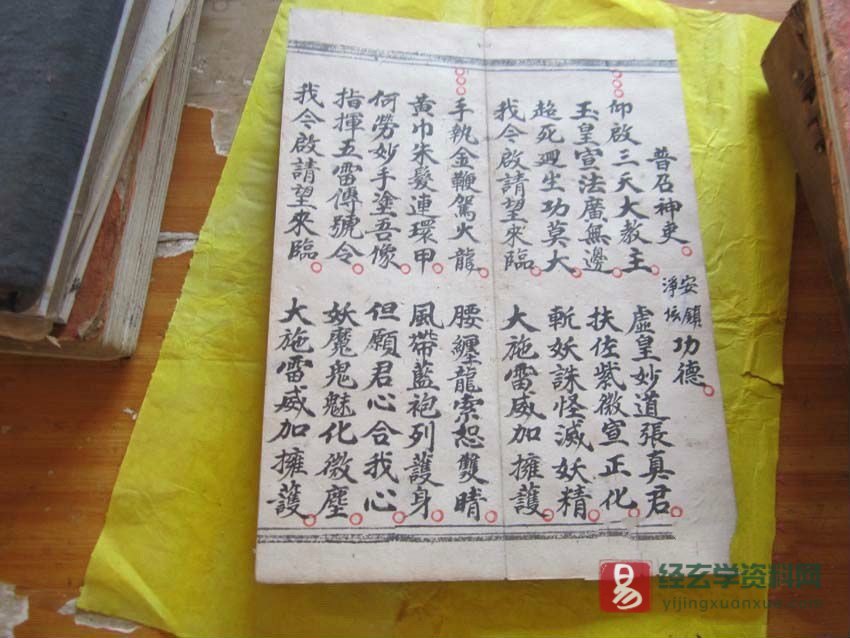 普召神吏。安鎮淨坛功德。
仰啟三天大教主。虛皇妙道張真君。
玉皇宣法廣無邊。扶佐紫微宣正化。
超死迴生功莫大。斬妖誅怪滅妖精。
我今啟請望來臨。大施雷威加擁護。
手執金鞭駕火龍。腰纏龍索恕雙晴。
黃巾朱髮連環甲。風帶藍袍列護身。
何勞妙手塗吾像。但願君心合我心。
指揮五雷傳號令。妖魔鬼魅化微塵。
我今啟請望來臨。大施雷威加擁護。
易 经玄学资料网
yijingxuanxue.com